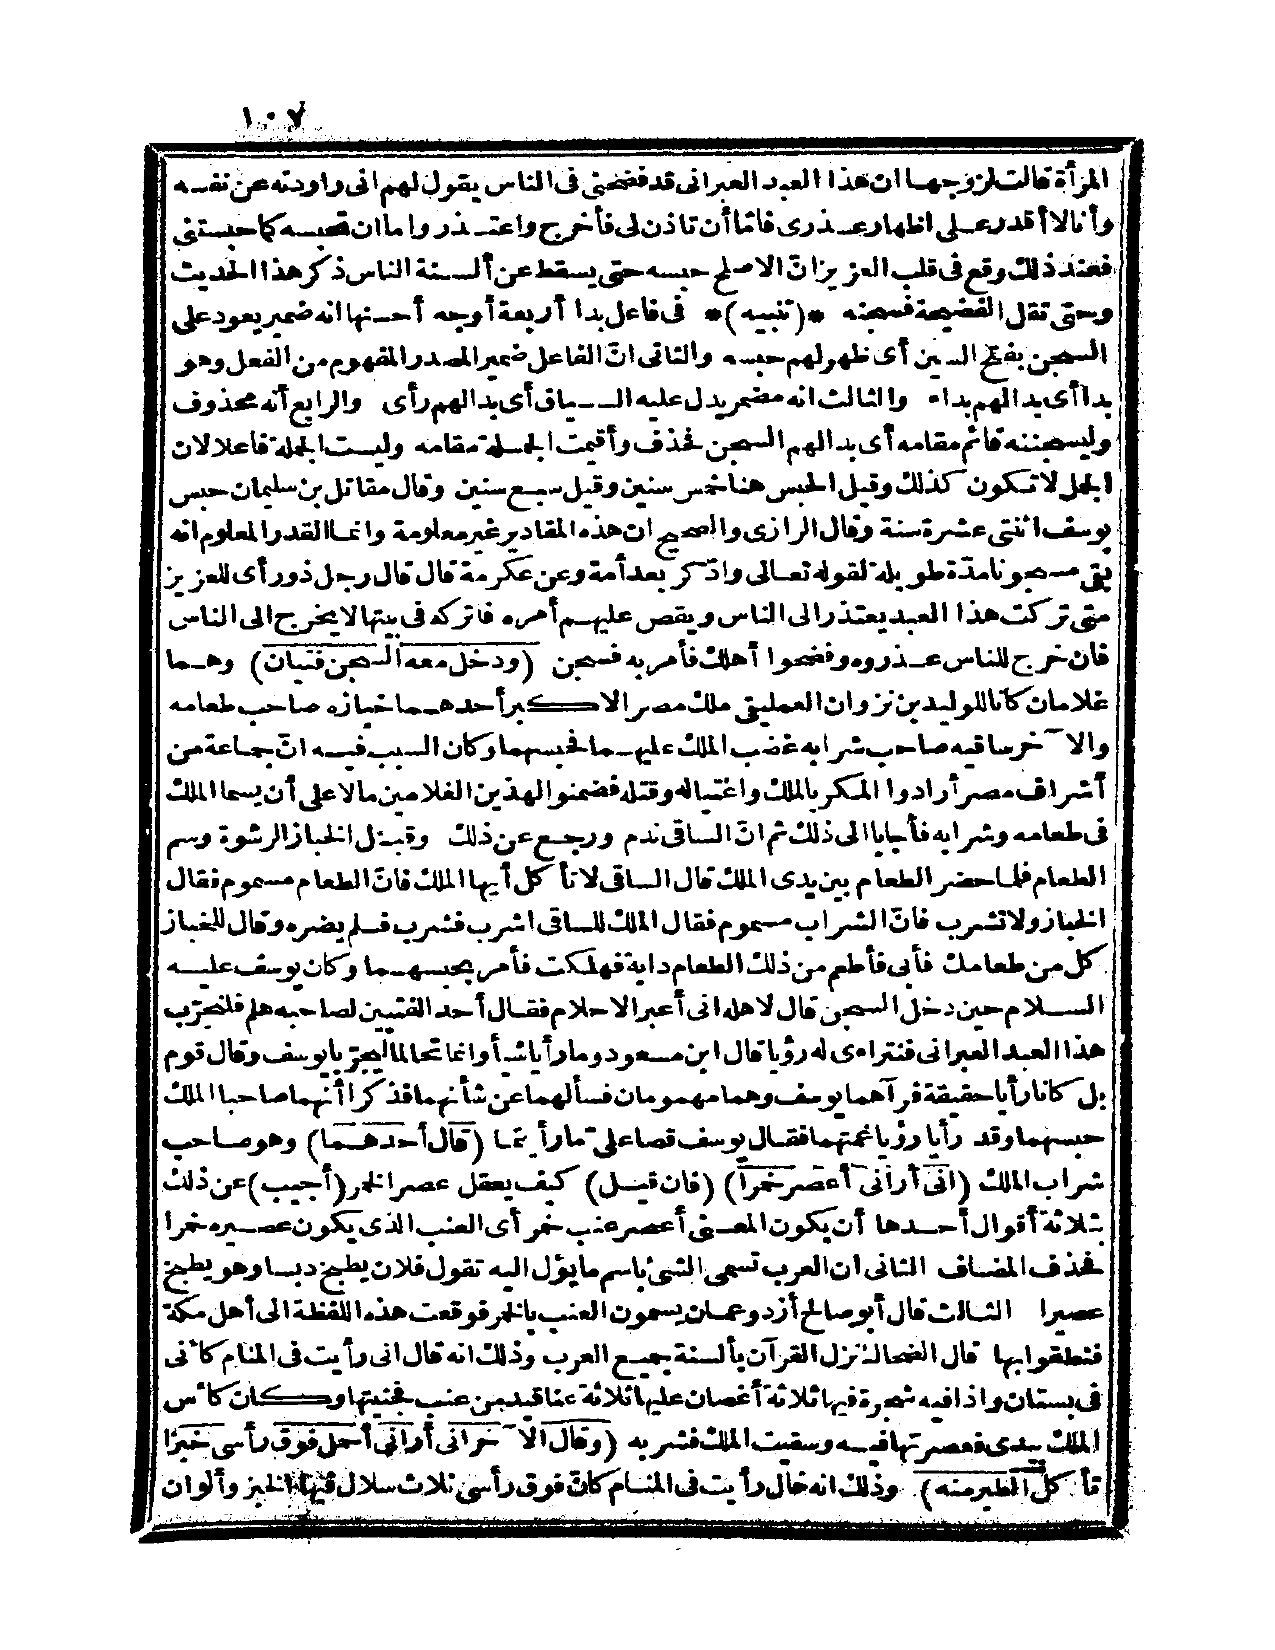 ١٠٧
المرأة قالت لزوجها ان هذا العبد العبرانى قد فضحنى فى الناس يقول لهم انى راودته عن نفسه
وأنا لا أقدر على اظهار عذرى فامّا أن تاذن لى فأخرج واعتذر واما ان تحبسه كما حبستنى
فعند ذلك وقع فى قلب العزيز انّ الاصلح حبسه حتى يسقط عن ألسنة الناس ذكر هذا الحديث
وحتى تقل الفضيحة فسجنه *(تنبيه)* فى فاعل بدا أربعة أوجه أحسنها انه ضمير يعود على
السجن بفتح السين أى ظهر لهم حبسه والثانى انّ الفاعل ضمير المصدر المفهوم من الفعل وهو
بدا أى بدا لهم بداء والثالث انه مضمر يدل عليه السياق أى بدا لهم رأى والرابع أنه محذوف
وليسجننه قائم مقامه أى بدا لهم السجن فحذف وأقيمت الجملة مقامه وليست الجملة فاعلا لان
الجمل لا تكون كذلك وقيل الحبس هنا خمس سنين وقيل سبع سنين وقال مقاتل بن سليمان حبس
يوسف اثنتى عشرة سنة وقال الرازى والصحيح ان هذه المقادير غير معلومة وانما القدر المعلوم انه
بقى مسجونا مدّة طويلة لقوله تعالى وادّكر بعد أمة وعن عكرمة قال قال رجل ذو رأى للعزيز
متى تركت هذا العبد يعتذر الى الناس ويقص عليهم أمره فاتركه فى بيتها لا يخرج الى الناس
فان خرج للناس عذروه وفضحوا أهلك فأمر به فسجن (ودخل معه السجن فتيان) وهما
غلامان كانا للوليد بن نزوان العمليقى ملك مصر الاكبر أحدهما خبازه صاحب طعامه
والآخر ساقيه صاحب شرابه غضب الملك عليهما فحبسهما وكان السبب فيه انّ جماعة من
أشراف مصر أرادوا المكر بالملك واغتياله وقتله فضمنوا لهذين الغلامين مالا على أن يسما الملك
فى طعامه وشرابه فأجابا الى ذلك ثم انّ الساقى ندم ورجع عن ذلك وقبل الخباز الرشوة وسم
الطعام فلما حضر الطعام بين يدى الملك قال الساقى لا تأكل أيها الملك فانّ الطعام مسموم فقال
الخباز ولا تشرب فانّ الشراب مسموم فقال الملك للساقى اشرب فشرب فلم يضره وقال للخباز
كل من طعامك فأبى فأطعم من ذلك الطعام دابة فهلكت فأمر بحبسهما وكان يوسف عليه
السلام حين دخل السجن قال لاهله انى أعبر الاحلام فقال أحد الفتيين لصاحبه هلم فلنجرّب
هذا العبد العبرانى فنتراءى له رؤيا قال ابن مسعود وما رأيا شيأ وانما تحالما ليجرّبا يوسف وقال قوم
بل كانا رأيا حقيقة فرآهما يوسف وهما مهمومان فسألهما عن شأنهما فذكرا أنهما صاحبا الملك
حبسهما وقد رأيا رؤيا غمتهما فقال يوسف قصا علىّ ما رأيتما (قال أحدهما) وهو صاحب
شراب الملك (انى أرانى أعصر خمرا) (فان قيل) كيف يعقل عصر الخمر (أجيب) عن ذلك
بثلاثة أقوال أحدها أن يكون المعنى أعصر عنب خمر أى العنب الذى يكون عصيره خمرا
فحذف المضاف الثانى ان العرب تسمى الشئ باسم ما يؤل اليه تقول فلان يطبخ دبسا وهو يطبخ
عصيرا الثالث قال أبو صالح أزد وعمان يسمون العنب بالخمر فوقعت هذه اللفظة الى أهل مكة
فنطقوا بها قال الضحاك نزل القرآن بألسنة جميع العرب وذلك انه قال انى رأيت فى المنام كأنى
فى بستان واذا فيه شجرة فيها ثلاثة أغصان عليها ثلاثة عناقيد من عنب فجنيتها وكان كأس
الملك بيدى فعصرتها فيه وسقيت الملك فشربه (وقال الآخر انى أرانى أحمل فوق رأسى خبزا
تأكل الطير منه) وذلك انه قال رأيت فى المنام كانّ فوق رأسى ثلاث سلال فيها الخبز وألوان